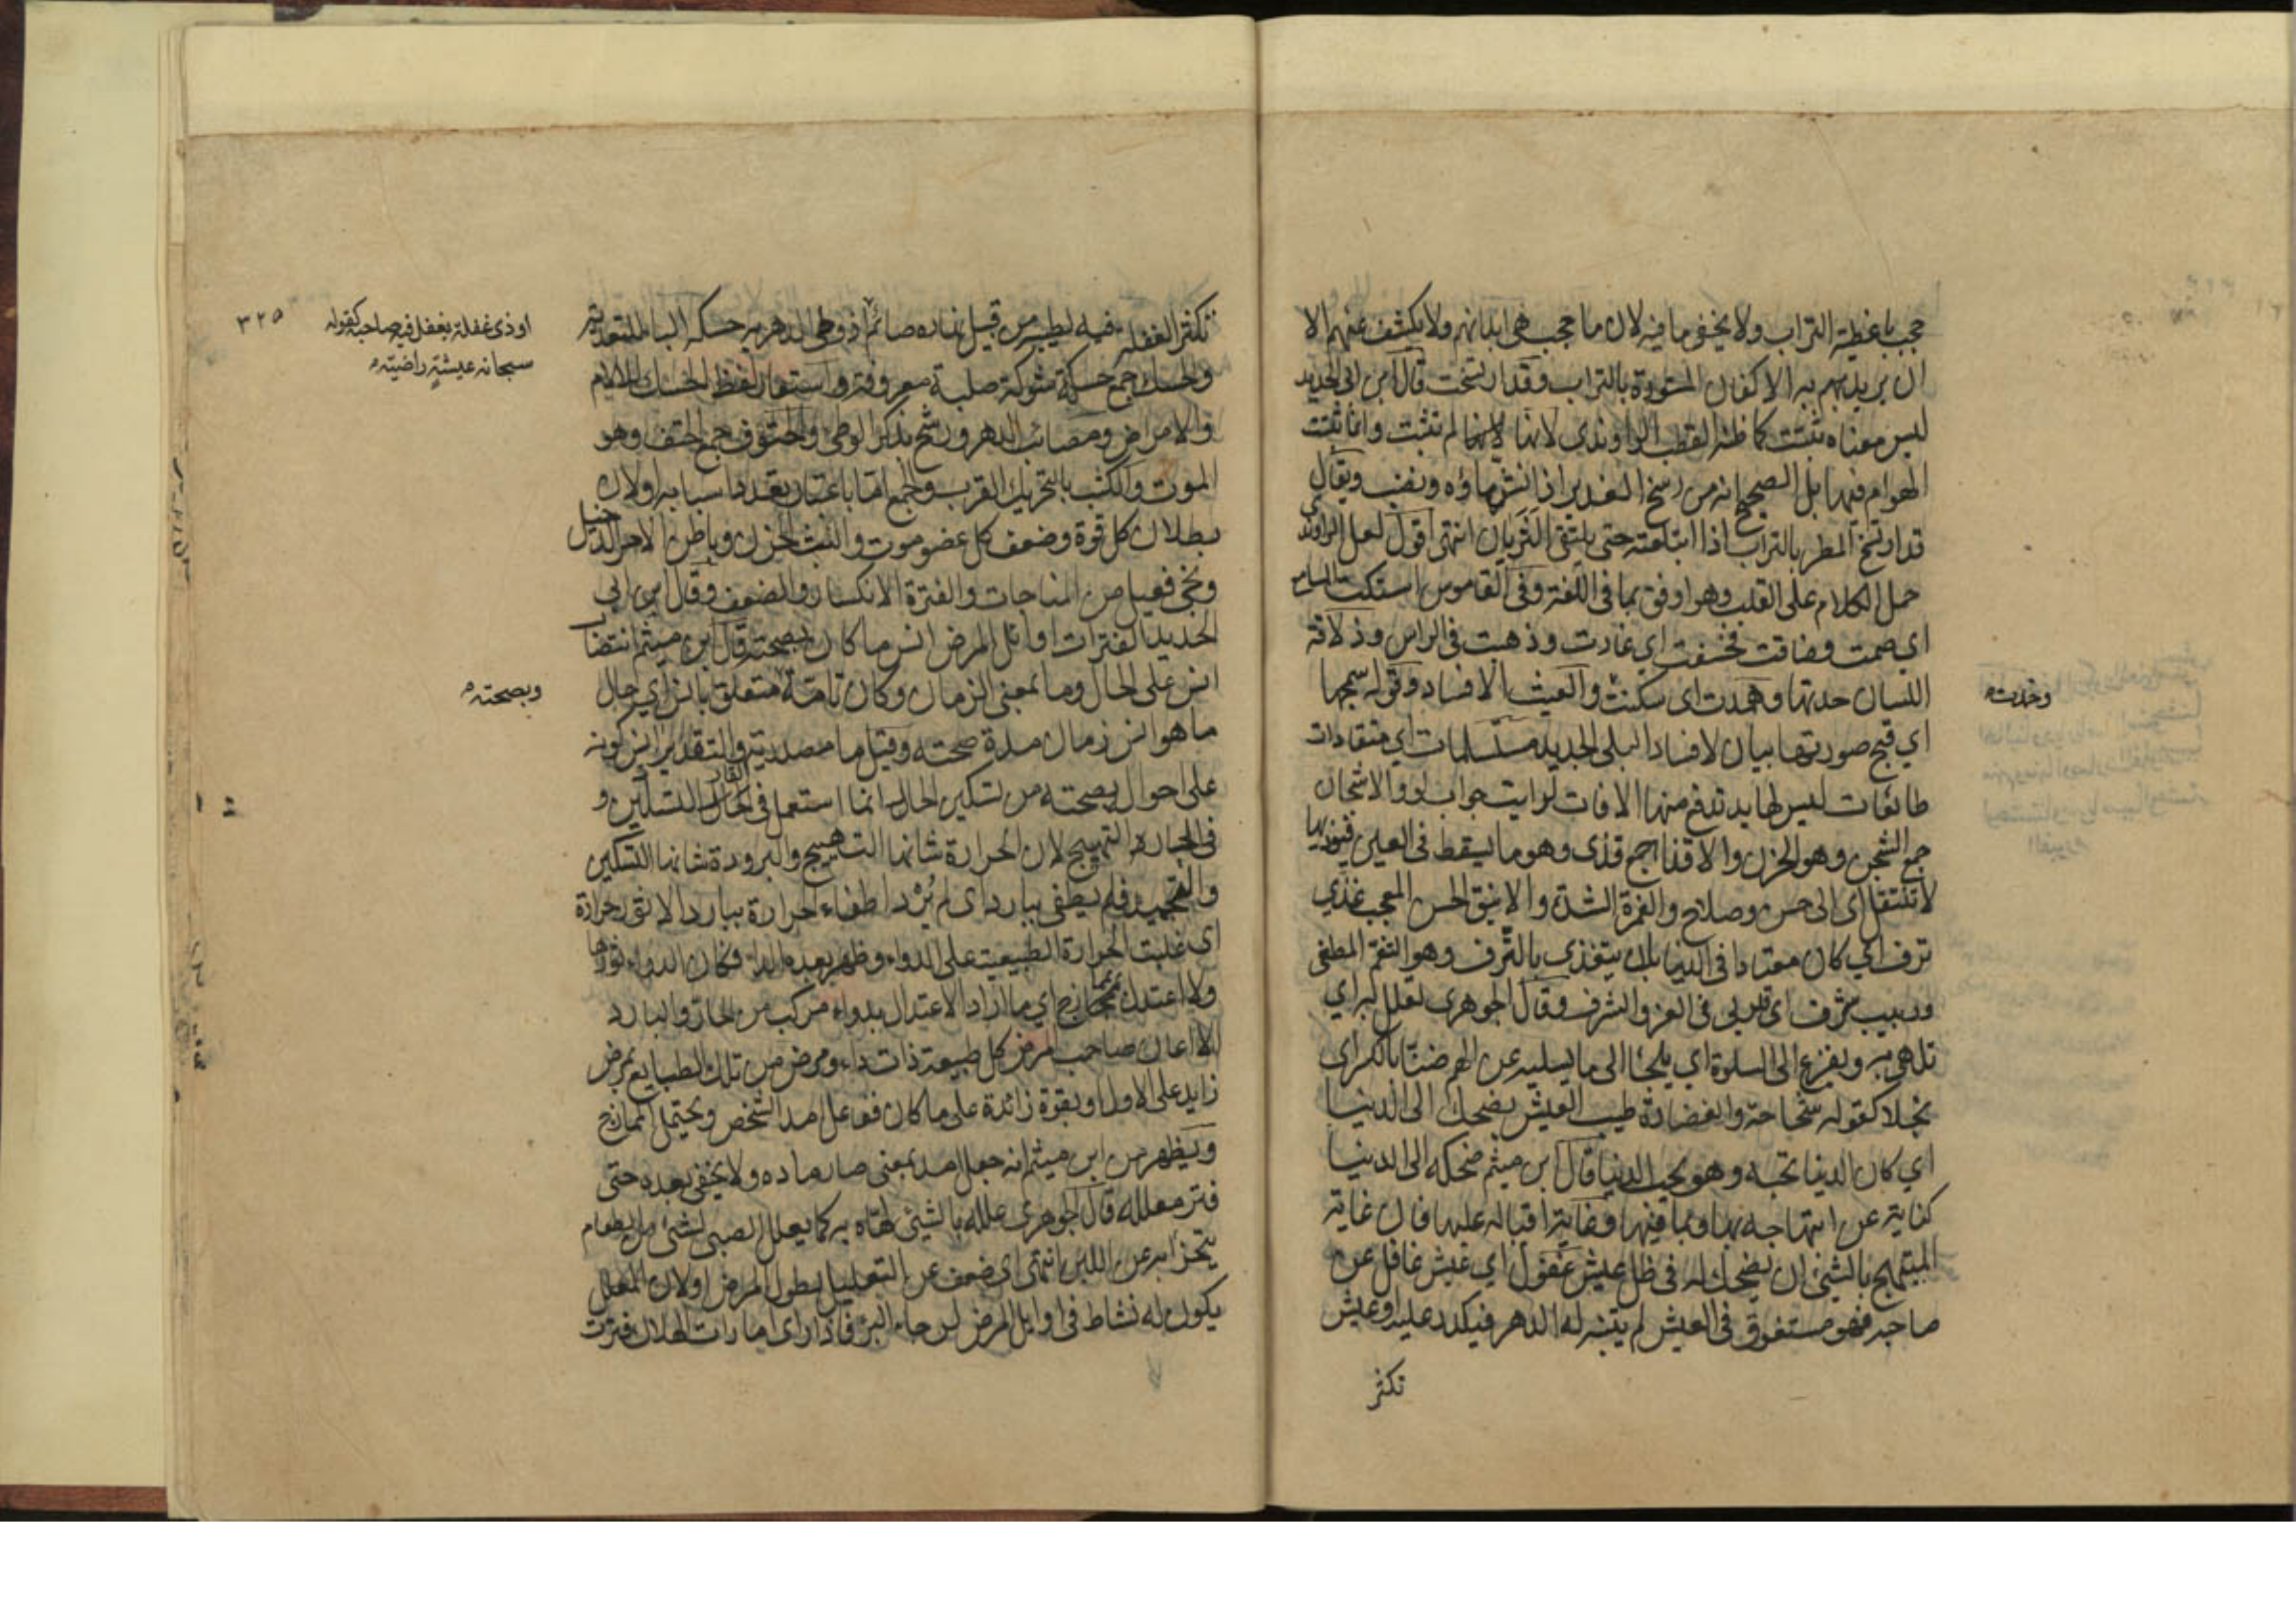 حجب باغطية التراب ولا يخفى ما فيه لان ما حجب هي ابدانهم ولا يكشف عنهم الا
ان يريد بهم به الاكفان المستورة بالتراب وقد ارتسخت قال ابن ابي الحديد
ليس معناه ثبتت كما ظنه القطب الراوندي لانها لم تثبت وانما ثبتت
الهوام فيها بل الصحيح انه من رسخ الغدير اذا نش ماؤه ونضب ويقال
قد ارتسخ المطر بالتراب اذا ابتلعته حتى يلتقي الثريان انتهى اقول لعل الراوندي
حمل الكلام على القلب وهو اوفق بما في اللغة وفي القاموس استكت المسامع
اي صمت وضاقت فخسفت اي غارت وذهبت في الراس وذلاقة
اللسان حدتها وهمدت اي سكنت والعيث الافساد وقوله سمجها
وخدت
اي قبح صورتها بيان لافساد البلى الجديد مستسلمات اي منقادات
طائعات ليس لها يد تدفع منها الافات لرايت جواب لو والاشجان
جمع الشجن وهو الحزن والاقذاء جمع قذى وهو ما يسقط في العين فيوذيها
لا تنتقل اي الى حسن وصلاح والغمرة الشدة والانيق الحسن المعجب غذي
ترف اي كان معتادا في الدنيا بان يتغذى بالترف وهو التنعم المطغي
وربيب شرف اي قد ربي في العز والشرف وقال الجوهري تعلل به اي
تلهى به ويفزع الى السلوة اي يلجا الى ما يسليه عن الهم ضنا بالكسر اي
بخلا كقوله شحاحة والغضارة طيب العيش يضحك الى الدنيا
اي كان الدنيا تحبه وهو يحب الدنيا قال ابن ميثم ضحكه الى الدنيا
كناية عن ابتهاجه بها وبما فيها وغاية اقباله عليها فان غاية
المبتهج بالشئ ان يضحك له في ظل عيش غفول اي عيش غافل عن
صاحبه فهو مستغرق في العيش لم يتنبه له الدهر فيكدر عليه او عيش
تكثر
٣٢٥
تكثر الغفلة فيه لطيبه من قبيل نهاره صائم اذ وطئ الدهر به حسكه الباء للتعدية
او ذي غفلة يغفل فيه صاحبه كقوله
سبحانه عيشة راضية
والحسك جمع حسكة شوكة صلبة معروفة واستعار لفظ الحسك للالام
والامراض ومصائب الدهر ورشح بذكر الوطي والحتوف جمع الحتف وهو
الموت والكثب بالتحريك القرب والجمع اما باعتبار تعدد اسبابه او لان
بطلان كل قوة وضعف كل عضو موت والبث الحزن وباطن الامر الدخيل
ونجي فعيل من المناجات والفترة الانكسار والضعف وقال ابن ابي
الحديد الفترات اوائل المرض انس ما كان بصحته قال ابن ميثم انتصاب
انس على الحال وما بمعنى الزمان وكان تامة وبصحته متعلق بانس اي حال
ما هو انس زمان مدة صحته وقيل ما مصدرية والتقدير انس كونه
على احوال بصحته من تسكين الحار انما استعمل في الحار التسكين و
في البارد التهييج لان الحرارة شانها التهييج والبرودة شانها التسكين
والتجميد فلم يطفئ ببارد اي لم يرد اطفاء الحرارة ببارد الا ثور حرارة
اي غلبت الحرارة الطبيعية على الدواء وظهر بعده الداء فكان الدواء ثورها
ولا اعتدل بممازج اي ما اراد الاعتدال بدواء مركب من الحار والبارد
الا اعان صاحب المرض كل طبيعة ذات داء ومرض من تلك الطبايع بمرض
زايد على الاول او بقوة زائدة على ما كان ففاعل امد الشخص ويحتمل الممازج
ويظهر من ابن ميثم انه جعل امد بمعنى صار ماده ولا يخفى بعده حتى
فتر معلله قال الجوهري علله بالشئ لهاه به كما يعلل الصبي بشئ من الطعام
يتجزا به عن اللبن انتهى اي ضعف عن التعليل لطول المرض او لان المعلل
يكون له نشاط في اوايل المرض لرجاء البرء فاذا راى امارات الهلاك فترت